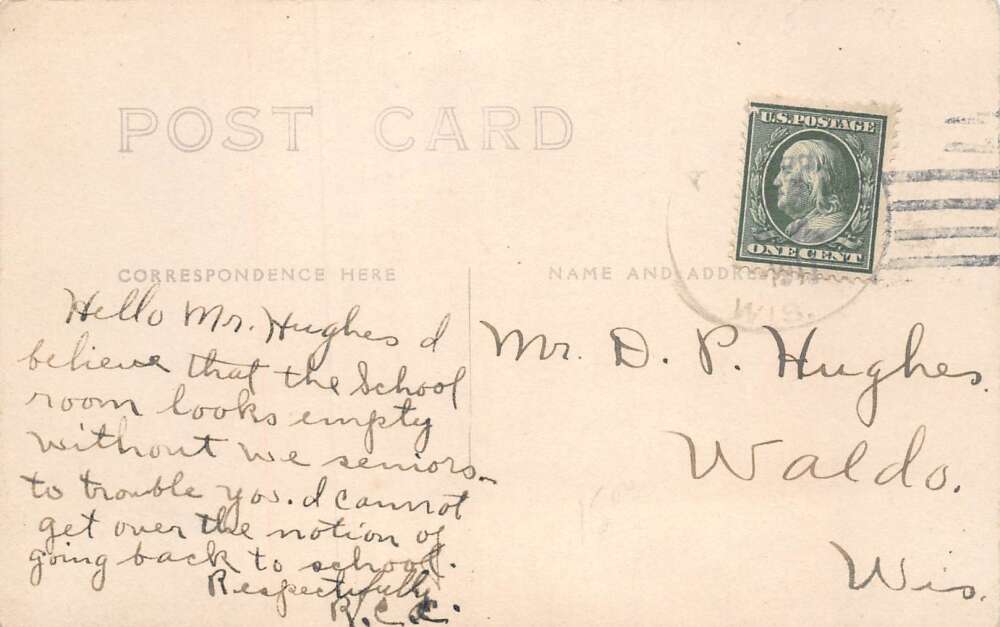 POST CARD
U.S. POSTAGE
ONE CENT
WIS.
CORRESPONDENCE HERE
NAME AND ADDRE
Hello Mr. Hughes I
believe that the School
room looks empty
without we seniors
to trouble you. I cannot
get over the notion of
going back to school.
Respectfully
R.C.
Mr. D. P. Hughes.
Waldo.
Wis.